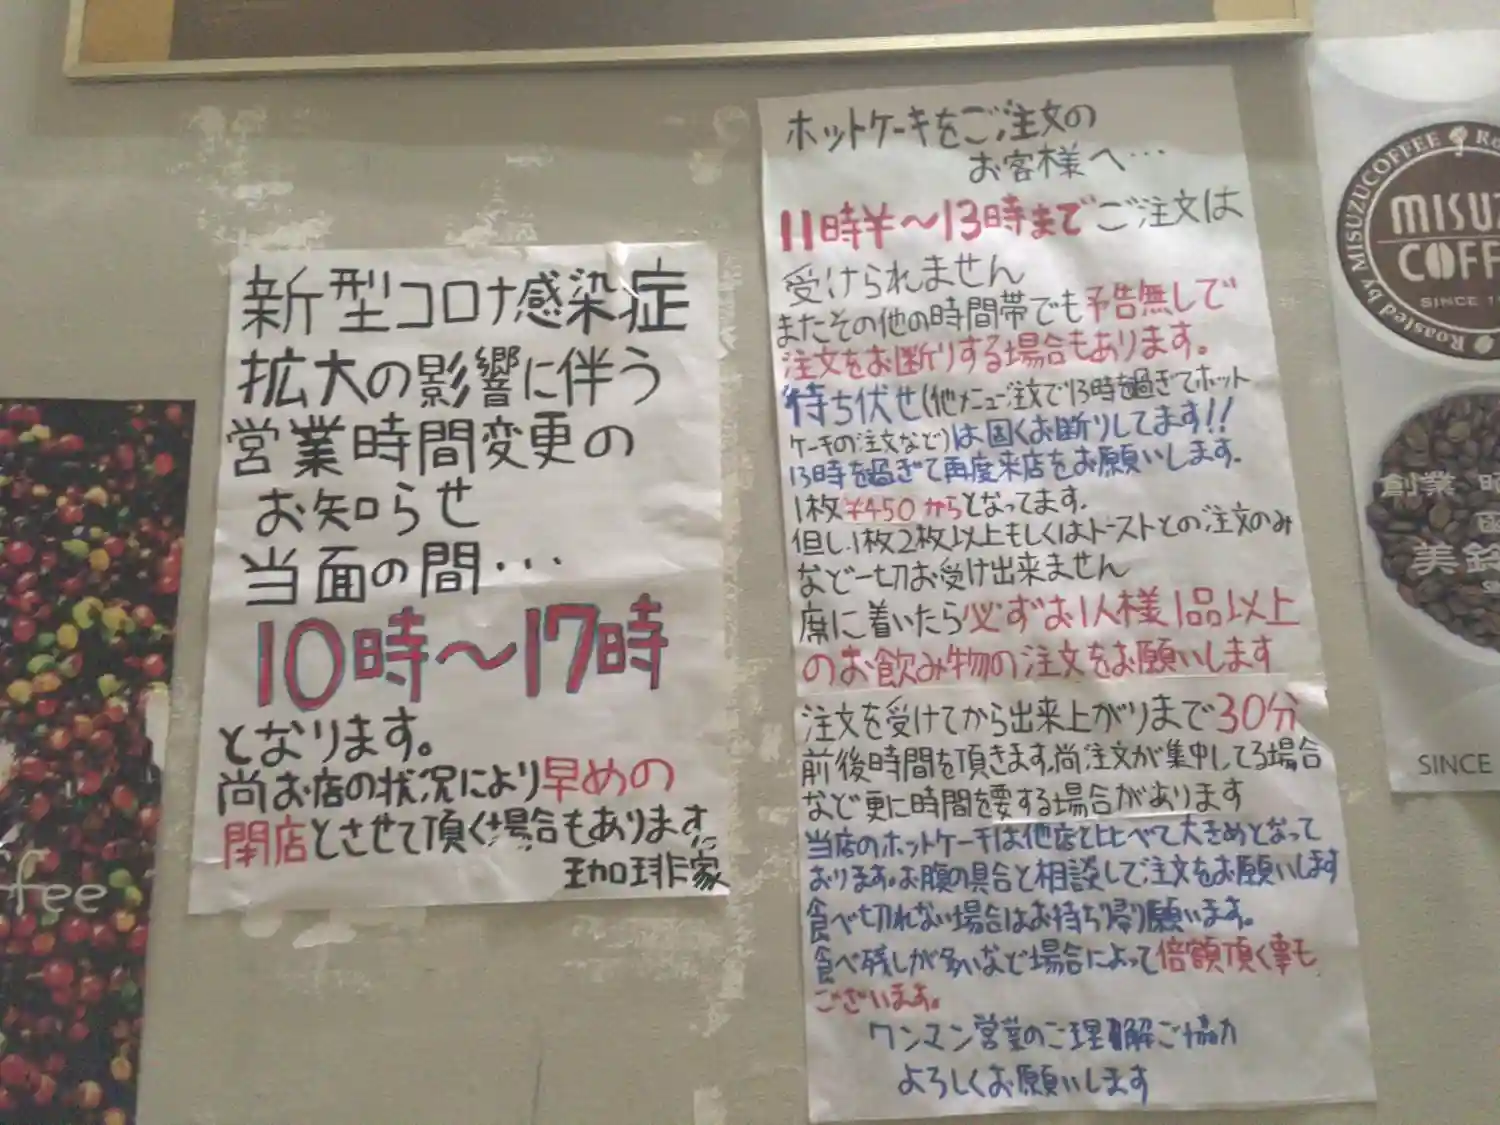 新型コロナ感染症
拡大の影響に伴う
営業時間変更の
お知らせ
当面の間…
10時〜17時
となります。
尚お店の状況により早めの
閉店とさせて頂く場合もあります
珈琲家
ホットケーキをご注文の
お客様へ…
11時半〜13時までご注文は
受けられません
またその他の時間帯でも予告無しで
注文をお断りする場合もあります。
待ち伏せ(他メニューご注文で13時を過ぎてホット
ケーキの注文など)は固くお断りしてます!!
13時を過ぎて再度来店をお願いします.
1枚¥450からとなってます.
但し、1枚2枚以上もしくはトーストとのご注文のみ
など一切お受け出来ません
席に着いたら必ずお1人様1品以上
のお飲み物の注文をお願いします
注文を受けてから出来上がりまで30分
前後時間を頂きます,尚注文が集中してる場合
など更に時間を要する場合があります
当店のホットケーキは他店と比べて大きめとなって
おります。お腹の具合と相談してご注文をお願いします
食べ切れない場合はお持ち帰り願います。
食べ残しが多いなど場合によって倍額頂く事も
ございます。
ワンマン営業のご理解ご協力
よろしくお願いします
Roasted by MISUZUCOFFEE
MISUZ
COFF
SINCE 1
創業 昭
美鈴
SINCE
ffee